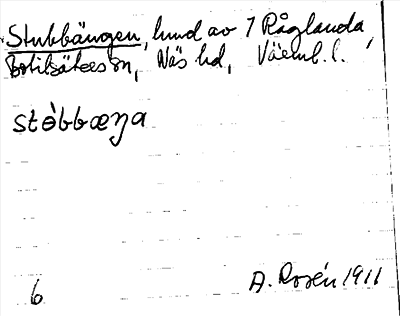 Stubbängen, lund av 7 Råglanda,
Botilsäters sn, Näs hd, Värml. l.
stɵ̀bbæŋa
6 A. Rosén 1911